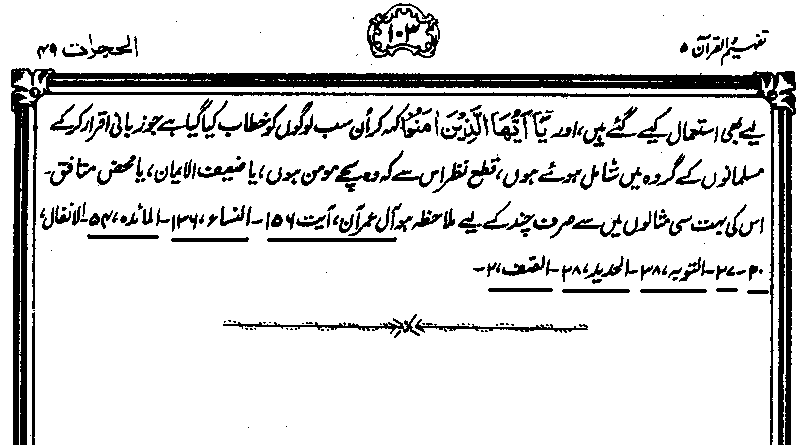 تفہیم القرآن ۵
۱۰۳
الحجرات ۴۹
لیے بھی استعمال کیے گئے ہیں، اور یٰٓاَیُّھَا الَّذِیْنَ اٰمَنُوْا کہہ کر اُن سب لوگوں کو خطاب کیا گیا ہے جو زبانی اقرار کر کے
مسلمانوں کے گروہ میں شامل ہوئے ہوں، قطع نظر اس سے کہ وہ سچے مومن ہوں، یا ضعیف الایمان، یا محض منافق۔
اس کی بہت سی مثالوں میں سے صرف چند کے لیے ملاحظہ ہو آل عمران، آیت ۱۵۶۔ النساء، ۱۳۶۔ المائدہ، ۵۴۔ الانفال،
۲۰۔۲۷۔ التوبہ، ۳۸۔ الحدید، ۲۸۔ الصّف، ۲۔